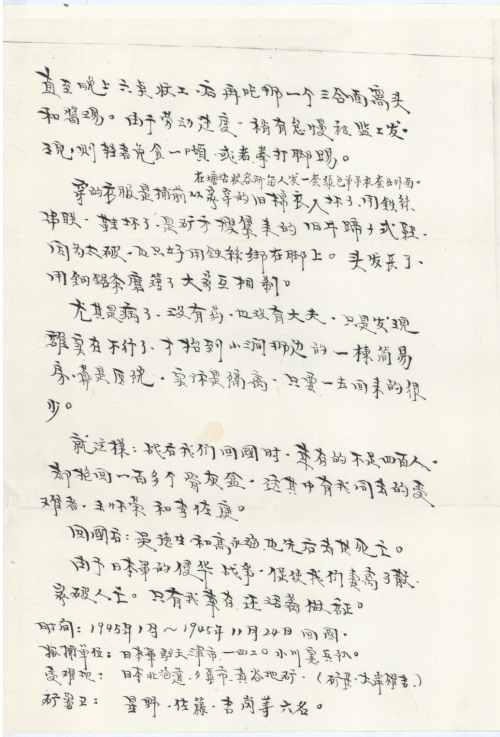 直至晚上六点收工,后再吃那一个三合面窝头
和酱汤。由于劳动进度,稍有怠慢被监工发
现,则轻者免食一顿,或者拳打脚踢。
在塘沽收容所每人发一套绿色单吊衣套在外面。
穿的衣服是捕前从家穿的旧棉衣,坏了,用铁丝
串联,鞋坏了,是矿方搜集来的旧牛蹄子式鞋,
因为太破,也只好用铁丝绑在脚上。头发长了,
用钢锯条磨薄了大家互相剃。
尤其是病了,没有药,也没有大夫,只是发现
谁实在不行了,才抬到小河那边的一栋简易
房,算是医院,实际是隔离,只要一去回来的很
少。
就这樣:战后我们回國时,幸存的不足四百人,
却抱回一百多个骨灰盒,这其中有我同去的受
难者,王怀荣和李佐庚。
回國后:吴德生和高永, 也先后者其死亡。
由于日本軍的侵华战争,促使我们妻离子散,
家破人亡。只有我幸存还活着做证。
时间:1945年1月~1945年11月24日回國。
抓捕单位:日本軍駐天津市一四二〇小川 兵队。
受难地:日本北海道,夕 市,真谷地矿。(矿長:大岸 )
矿警卫:星野,佐藤,吉岗等六名。